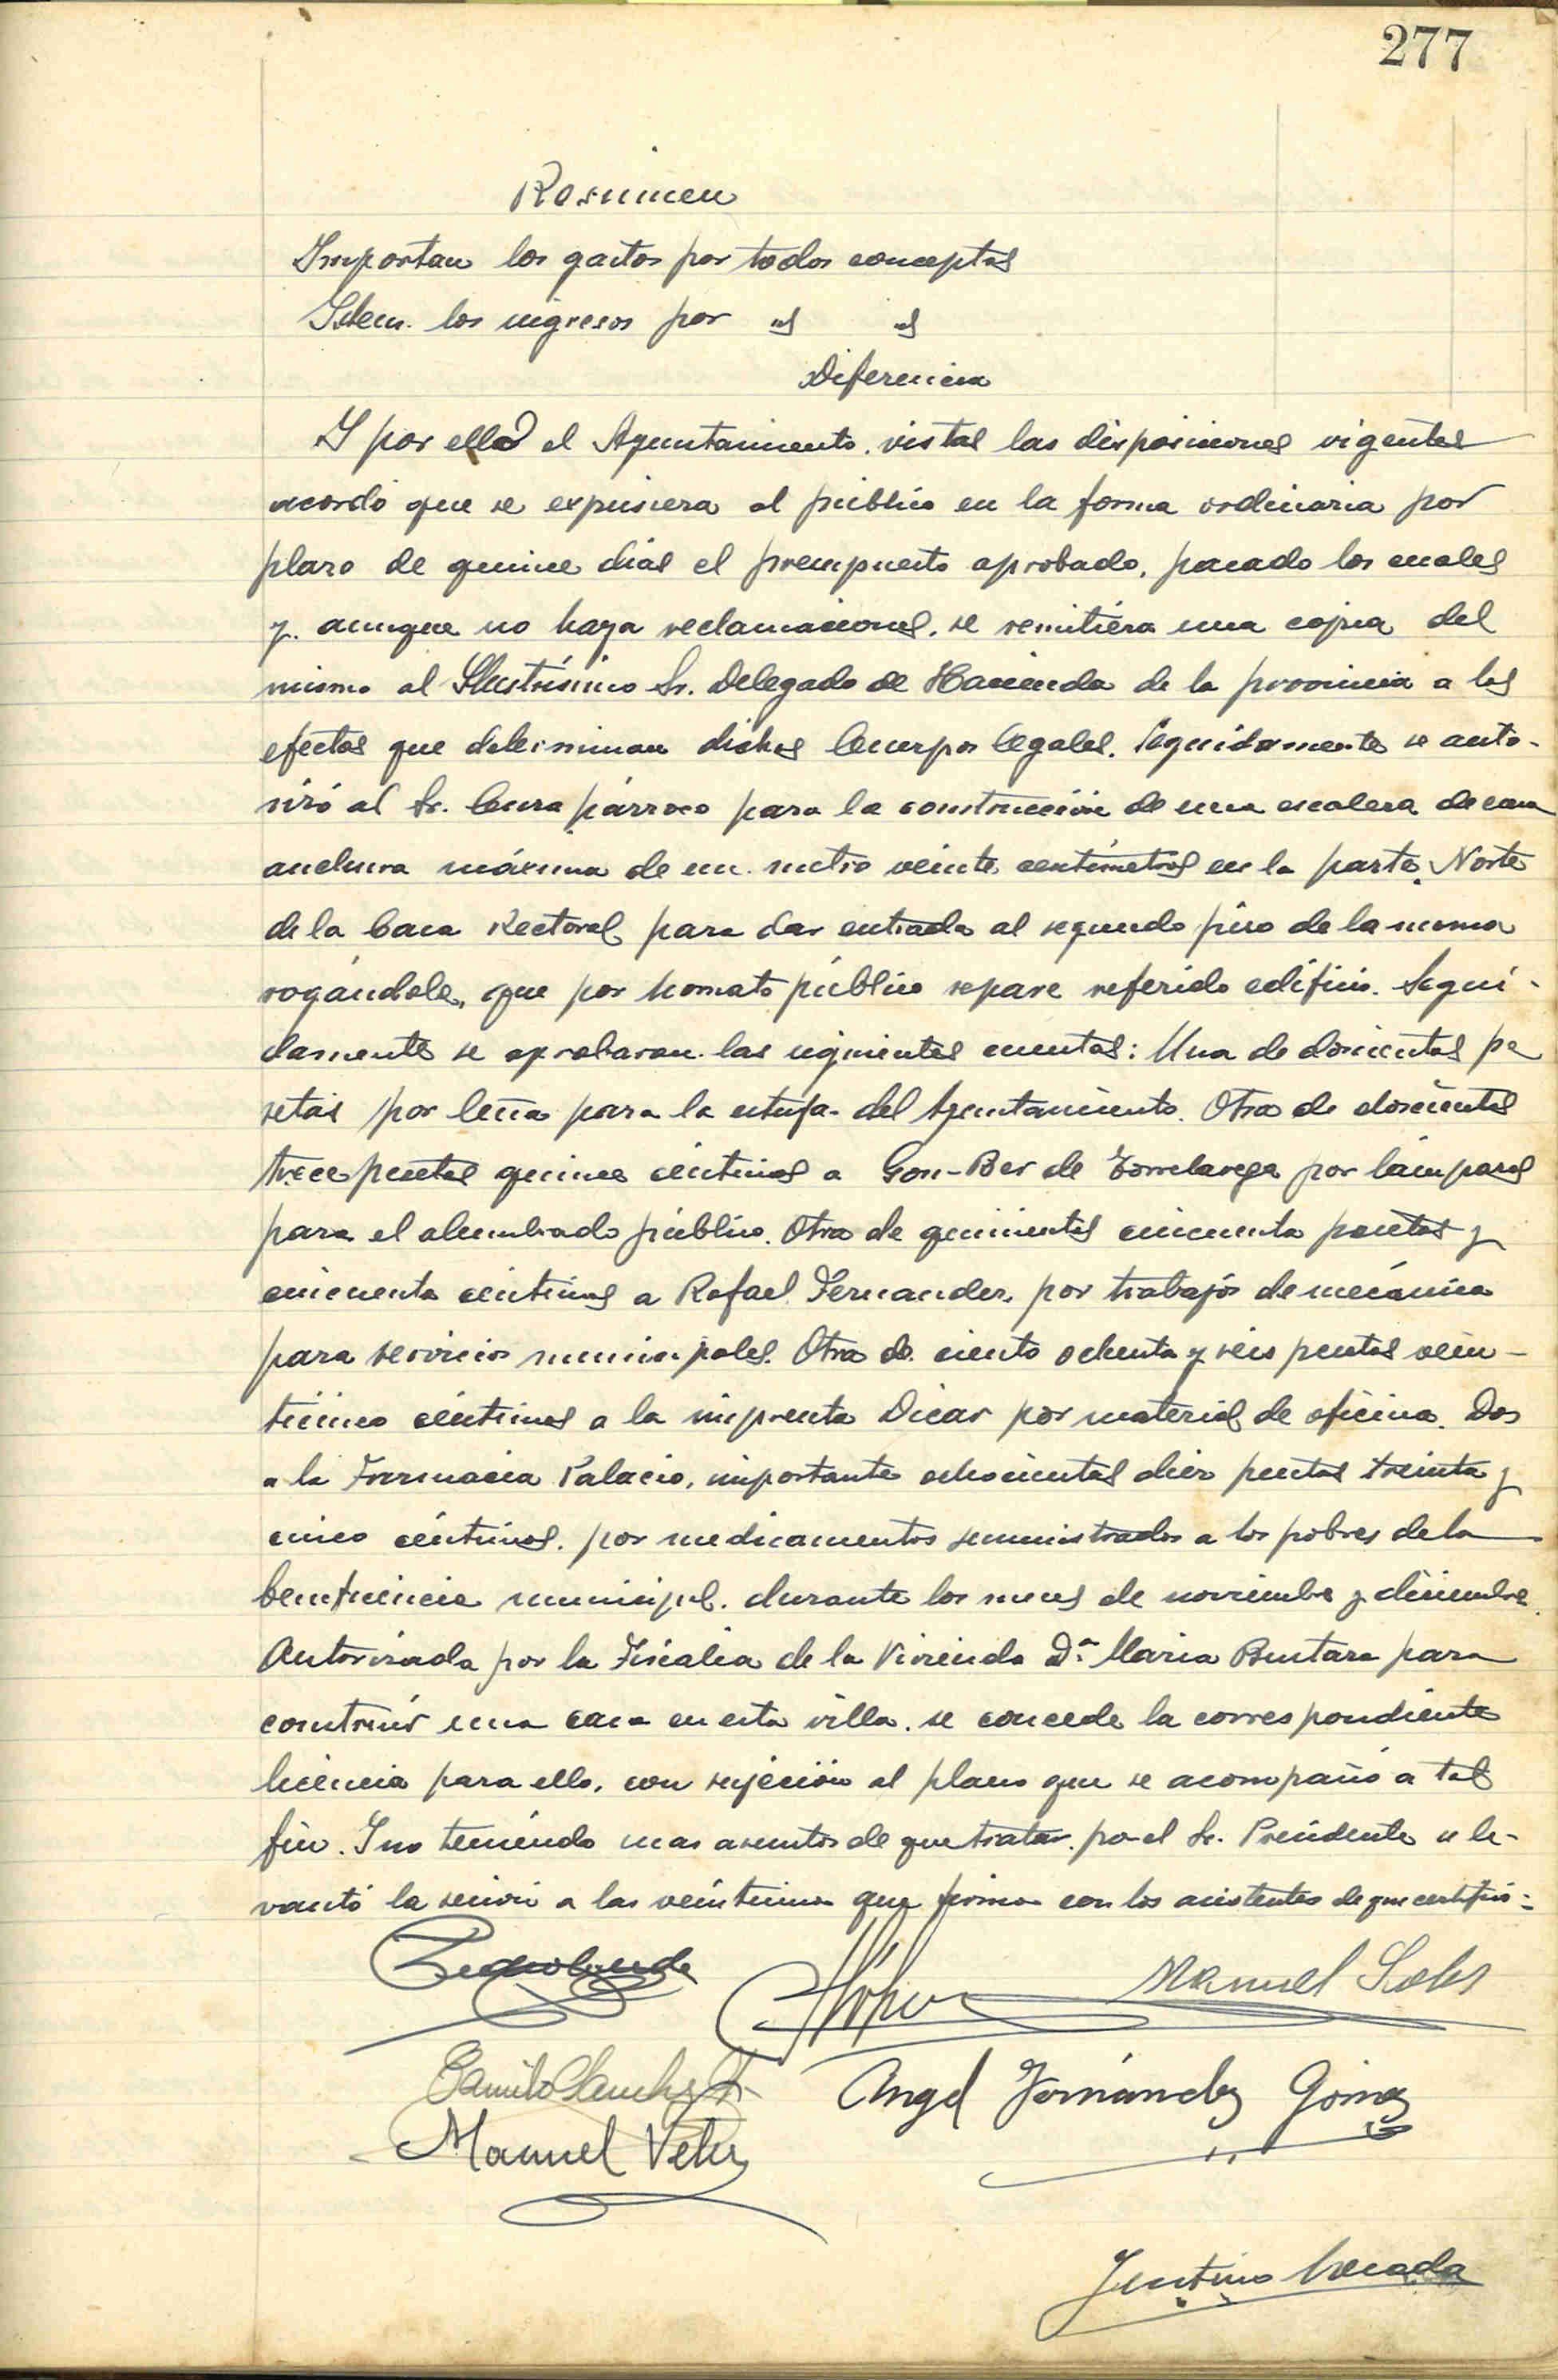 277
Resumen
Importan los gastos por todos conceptos
Idem. los ingresos por " "
Diferencia
Y por ello el Ayuntamiento. vistas las disposiciones vigentes
acordó que se expusiera al público en la forma ordinaria por
plazo de quince días el presupuesto aprobado, pasado los cuales
y. aunque no haya reclamaciones, se remitiera una copia del
mismo al Ilustrísimo Sr. Delegado de Hacienda de la provincia a los
efectos que determinan dichos Cuerpos legales. Seguidamente se auto-
rizó al Sr. Cura párroco para la construcción de una escalera de una
anchura máxima de un metro veinte centímetros en la parte Norte
de la Casa Rectoral para dar entrada al segundo piso de la misma
rogándole, que por hornato público repare referido edificio. Segui-
damente se aprobaron las siguientes cuentas: Una de doscientas pe
setas por leña para la estufa del Ayuntamiento. Otra de doscientas
trece pesetas quince céntimos a Gon-Ber de Torrelavega por lámparas
para el alumbrado público. Otra de quinientas cincuenta pesetas y
cincuenta céntimos a Rafael Fernandez, por trabajos de mecánica
para servicios municipales. Otra de ciento ochenta y seis pesetas vein-
ticinco céntimos a la imprenta Dicar por material de oficina. Dos
a la Farmacia Palacio, importante ochocientas diez pesetas treinta y
cinco céntimos. por medicamentos suministrados a los pobres de la
beneficencia municipal. durante los meses de noviembre y diciembre.
Autorizada por la Fiscalia de la Vivienda Dª Maria para
construir una casa en esta villa. se concede la correspondiente
licencia para ello, con sujeción al plano que se acompañó a tal
fin. Y no teniendo mas asuntos de que tratar. por el Sr. Presidente se le-
vantó la sesión a las veintiuna que firma con los asistentes de que certifico:-
Manuel
Camilo Sanchez
Angel Fernández Gómez
Manuel Velez
Justino